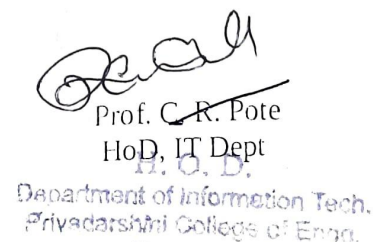 Prof. C. R. Pote
HoD, IT Dept
H. O. D.
Department of Information Tech.
Priyadarshini College of Engg.